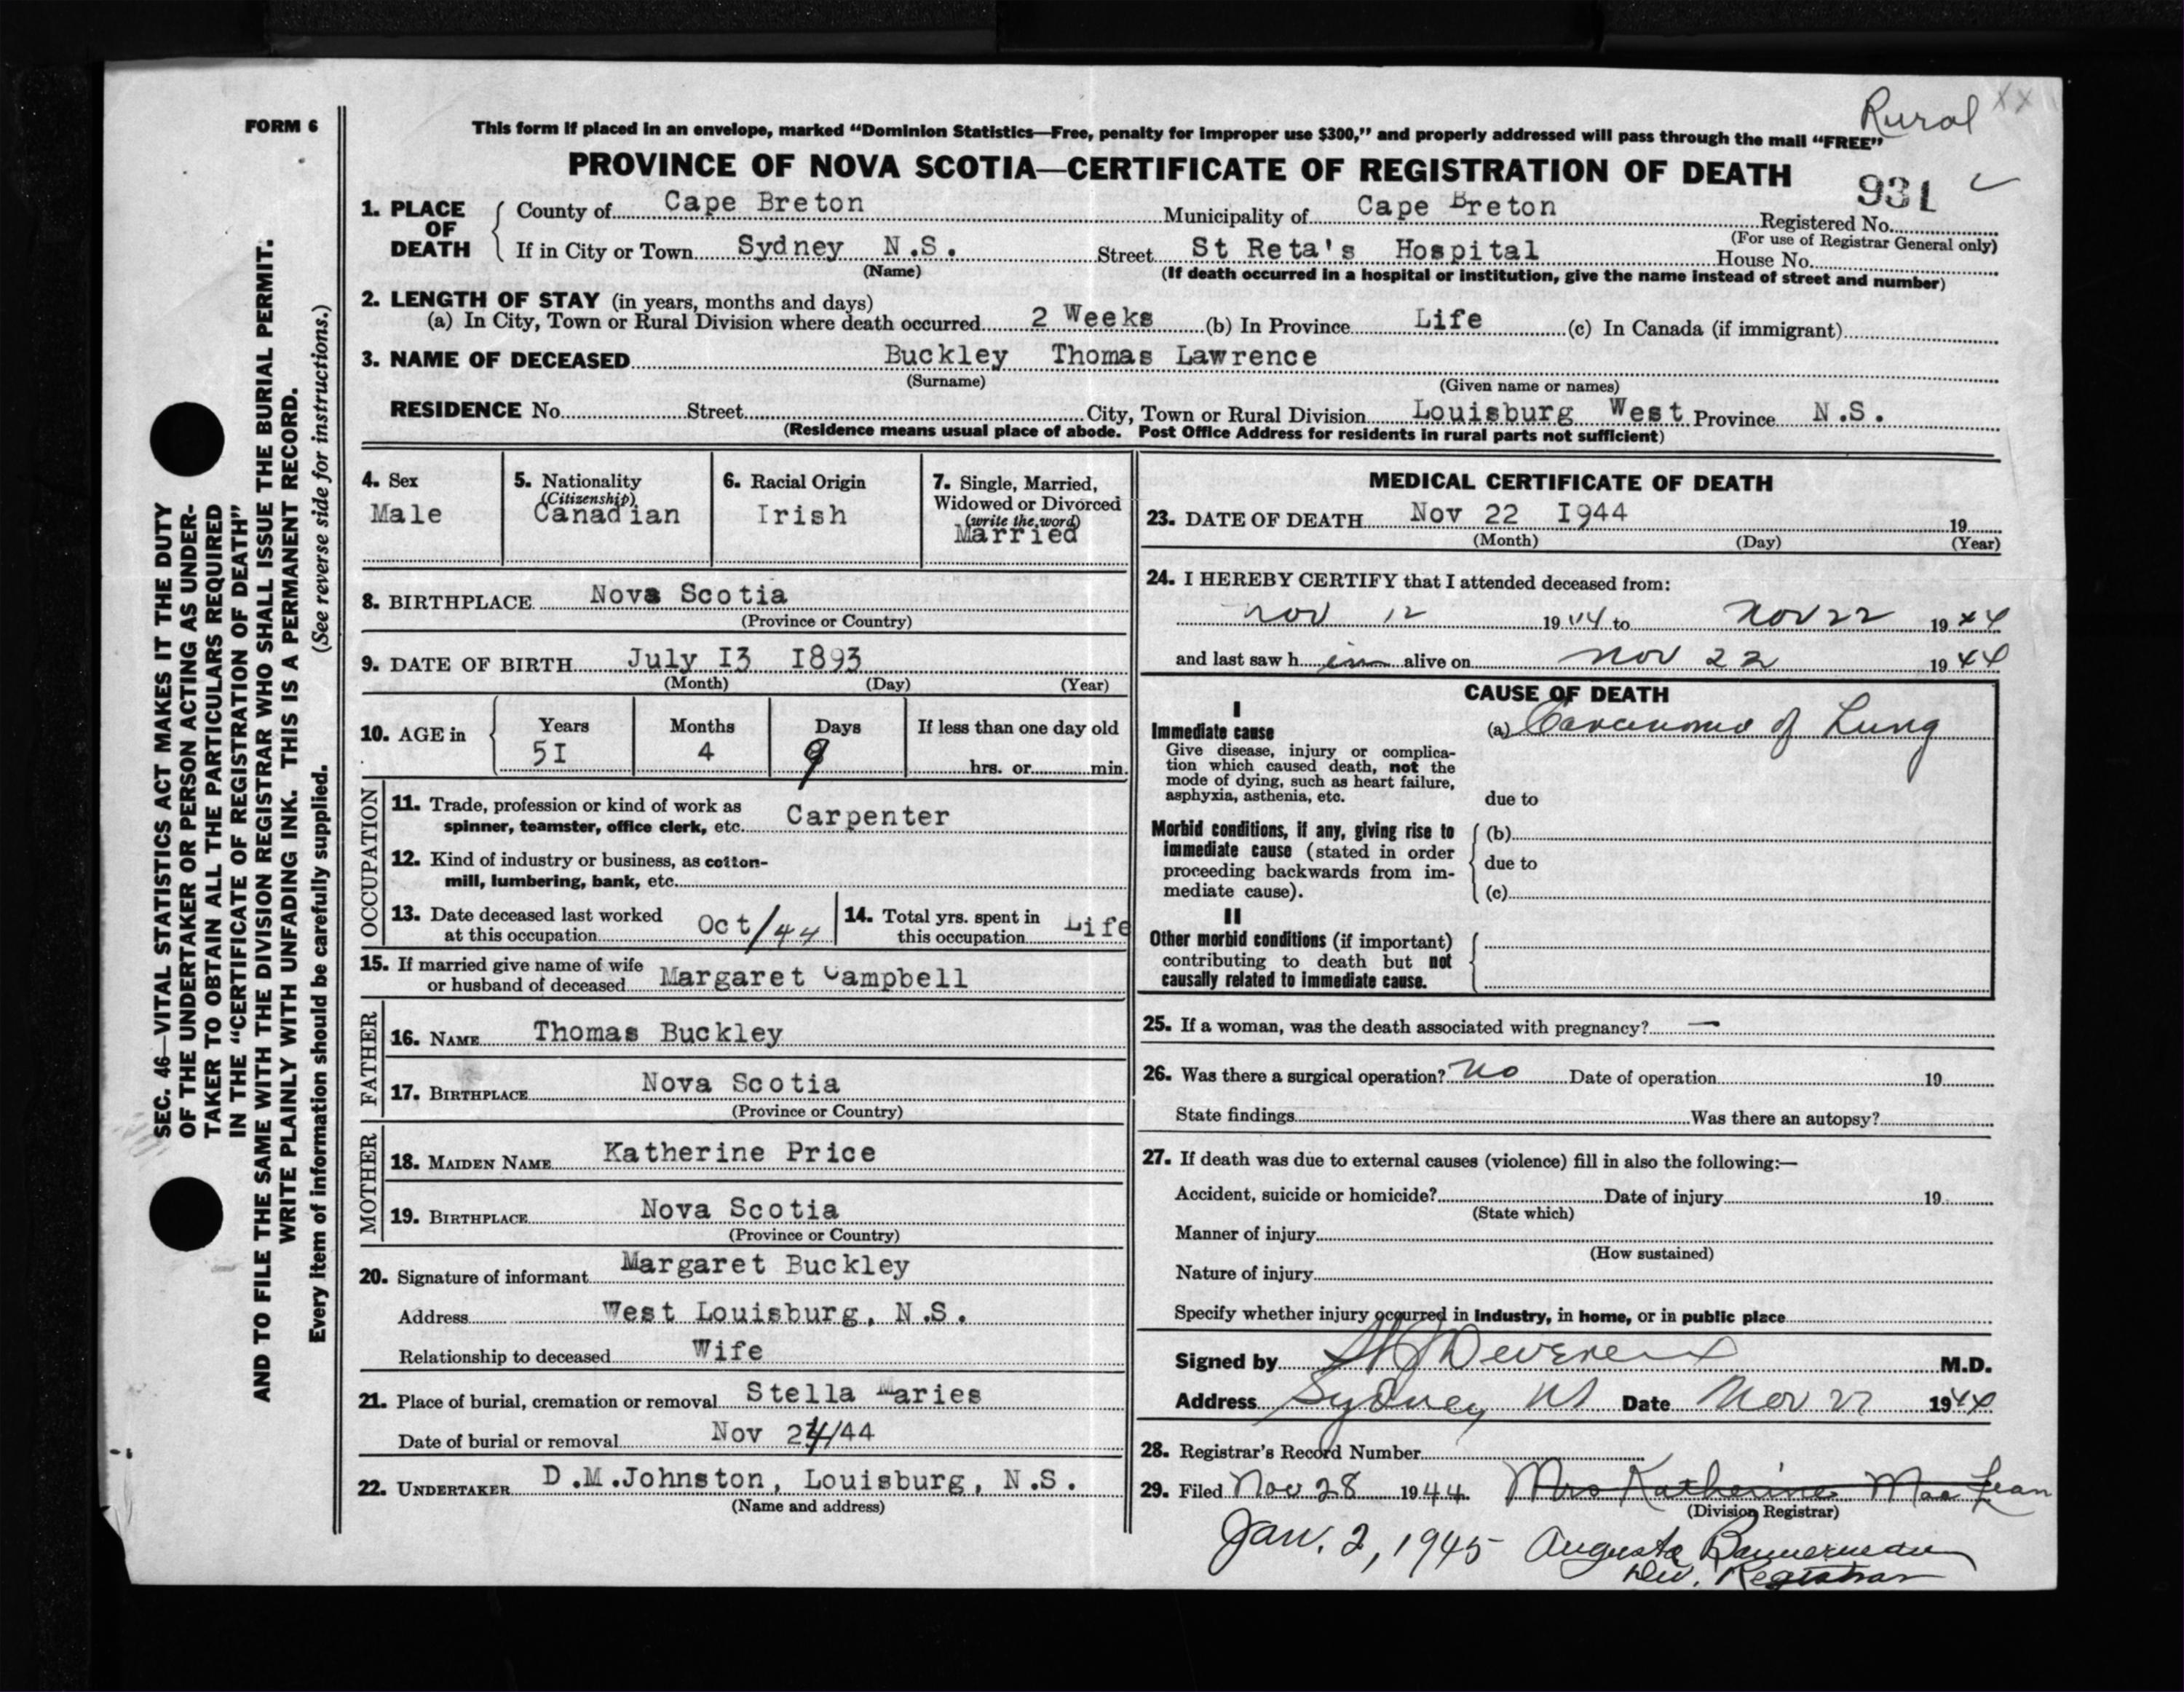 Rural XX
FORM 6
This form if placed in an envelope, marked “Dominion Statistics—Free, penalty for improper use $300,” and properly addressed will pass through the mail “FREE”
PROVINCE OF NOVA SCOTIA—CERTIFICATE OF REGISTRATION OF DEATH
931
1. PLACE OF DEATH County of Cape Breton Municipality of Cape Breton Registered No.
(For use of Registrar General only)
If in City or Town Sydney N.S. Street St Reta's Hospital House No.
(Name) (If death occurred in a hospital or institution, give the name instead of street and number)
2. LENGTH OF STAY (in years, months and days)
(a) In City, Town or Rural Division where death occurred 2 Weeks (b) In Province Life (c) In Canada (if immigrant)
3. NAME OF DECEASED Buckley Thomas Lawrence
(Surname) (Given name or names)
RESIDENCE No. Street City, Town or Rural Division Louisburg West Province N.S.
(Residence means usual place of abode. Post Office Address for residents in rural parts not sufficient)
4. Sex
Male
5. Nationality
(Citizenship)
Canadian
6. Racial Origin
Irish
7. Single, Married,
Widowed or Divorced
(write the word)
Married
8. BIRTHPLACE Nova Scotia
(Province or Country)
9. DATE OF BIRTH July I3 I893
(Month) (Day) (Year)
10. AGE in
Years Months Days If less than one day old
5I 4 9 hrs. or min.
OCCUPATION
11. Trade, profession or kind of work as
spinner, teamster, office clerk, etc. Carpenter
12. Kind of industry or business, as cotton-
mill, lumbering, bank, etc.
13. Date deceased last worked
at this occupation Oct/44
14. Total yrs. spent in
this occupation Life
15. If married give name of wife
or husband of deceased Margaret Campbell
FATHER
16. NAME Thomas Buckley
17. BIRTHPLACE Nova Scotia
(Province or Country)
MOTHER
18. MAIDEN NAME Katherine Price
19. BIRTHPLACE Nova Scotia
(Province or Country)
20. Signature of informant Margaret Buckley
Address West Louisburg, N.S.
Relationship to deceased Wife
21. Place of burial, cremation or removal Stella Maries
Date of burial or removal Nov 24/44
22. UNDERTAKER D.M.Johnston, Louisburg, N.S.
(Name and address)
MEDICAL CERTIFICATE OF DEATH
23. DATE OF DEATH Nov 22 I944 19
(Month) (Day) (Year)
24. I HEREBY CERTIFY that I attended deceased from:
Nov 12 1944 to Nov 22 1944
and last saw h im alive on Nov 22 1944
CAUSE OF DEATH
I
Immediate cause
Give disease, injury or complica-
tion which caused death, not the
mode of dying, such as heart failure,
asphyxia, asthenia, etc.
(a) Carcinoma of Lung
due to
Morbid conditions, if any, giving rise to
immediate cause (stated in order
proceeding backwards from im-
mediate cause).
(b)
due to
(c)
II
Other morbid conditions (if important)
contributing to death but not
causally related to immediate cause.
25. If a woman, was the death associated with pregnancy? —
26. Was there a surgical operation? No Date of operation 19
State findings Was there an autopsy?
27. If death was due to external causes (violence) fill in also the following:—
Accident, suicide or homicide? Date of injury 19
(State which)
Manner of injury
(How sustained)
Nature of injury
Specify whether injury occurred in industry, in home, or in public place
Signed by Devereux M.D.
Address Sydney NS Date Nov 27 1944
28. Registrar's Record Number
29. Filed Nov 28 1944 Mrs Katherine MacLean
(Division Registrar)
Jan. 2, 1945 Augusta Bannerman
Div. Registrar
SEC. 46—VITAL STATISTICS ACT MAKES IT THE DUTY
OF THE UNDERTAKER OR PERSON ACTING AS UNDER-
TAKER TO OBTAIN ALL THE PARTICULARS REQUIRED
IN THE “CERTIFICATE OF REGISTRATION OF DEATH”
AND TO FILE THE SAME WITH THE DIVISION REGISTRAR WHO SHALL ISSUE THE BURIAL PERMIT.
WRITE PLAINLY WITH UNFADING INK. THIS IS A PERMANENT RECORD.
Every item of information should be carefully supplied. (See reverse side for instructions.)